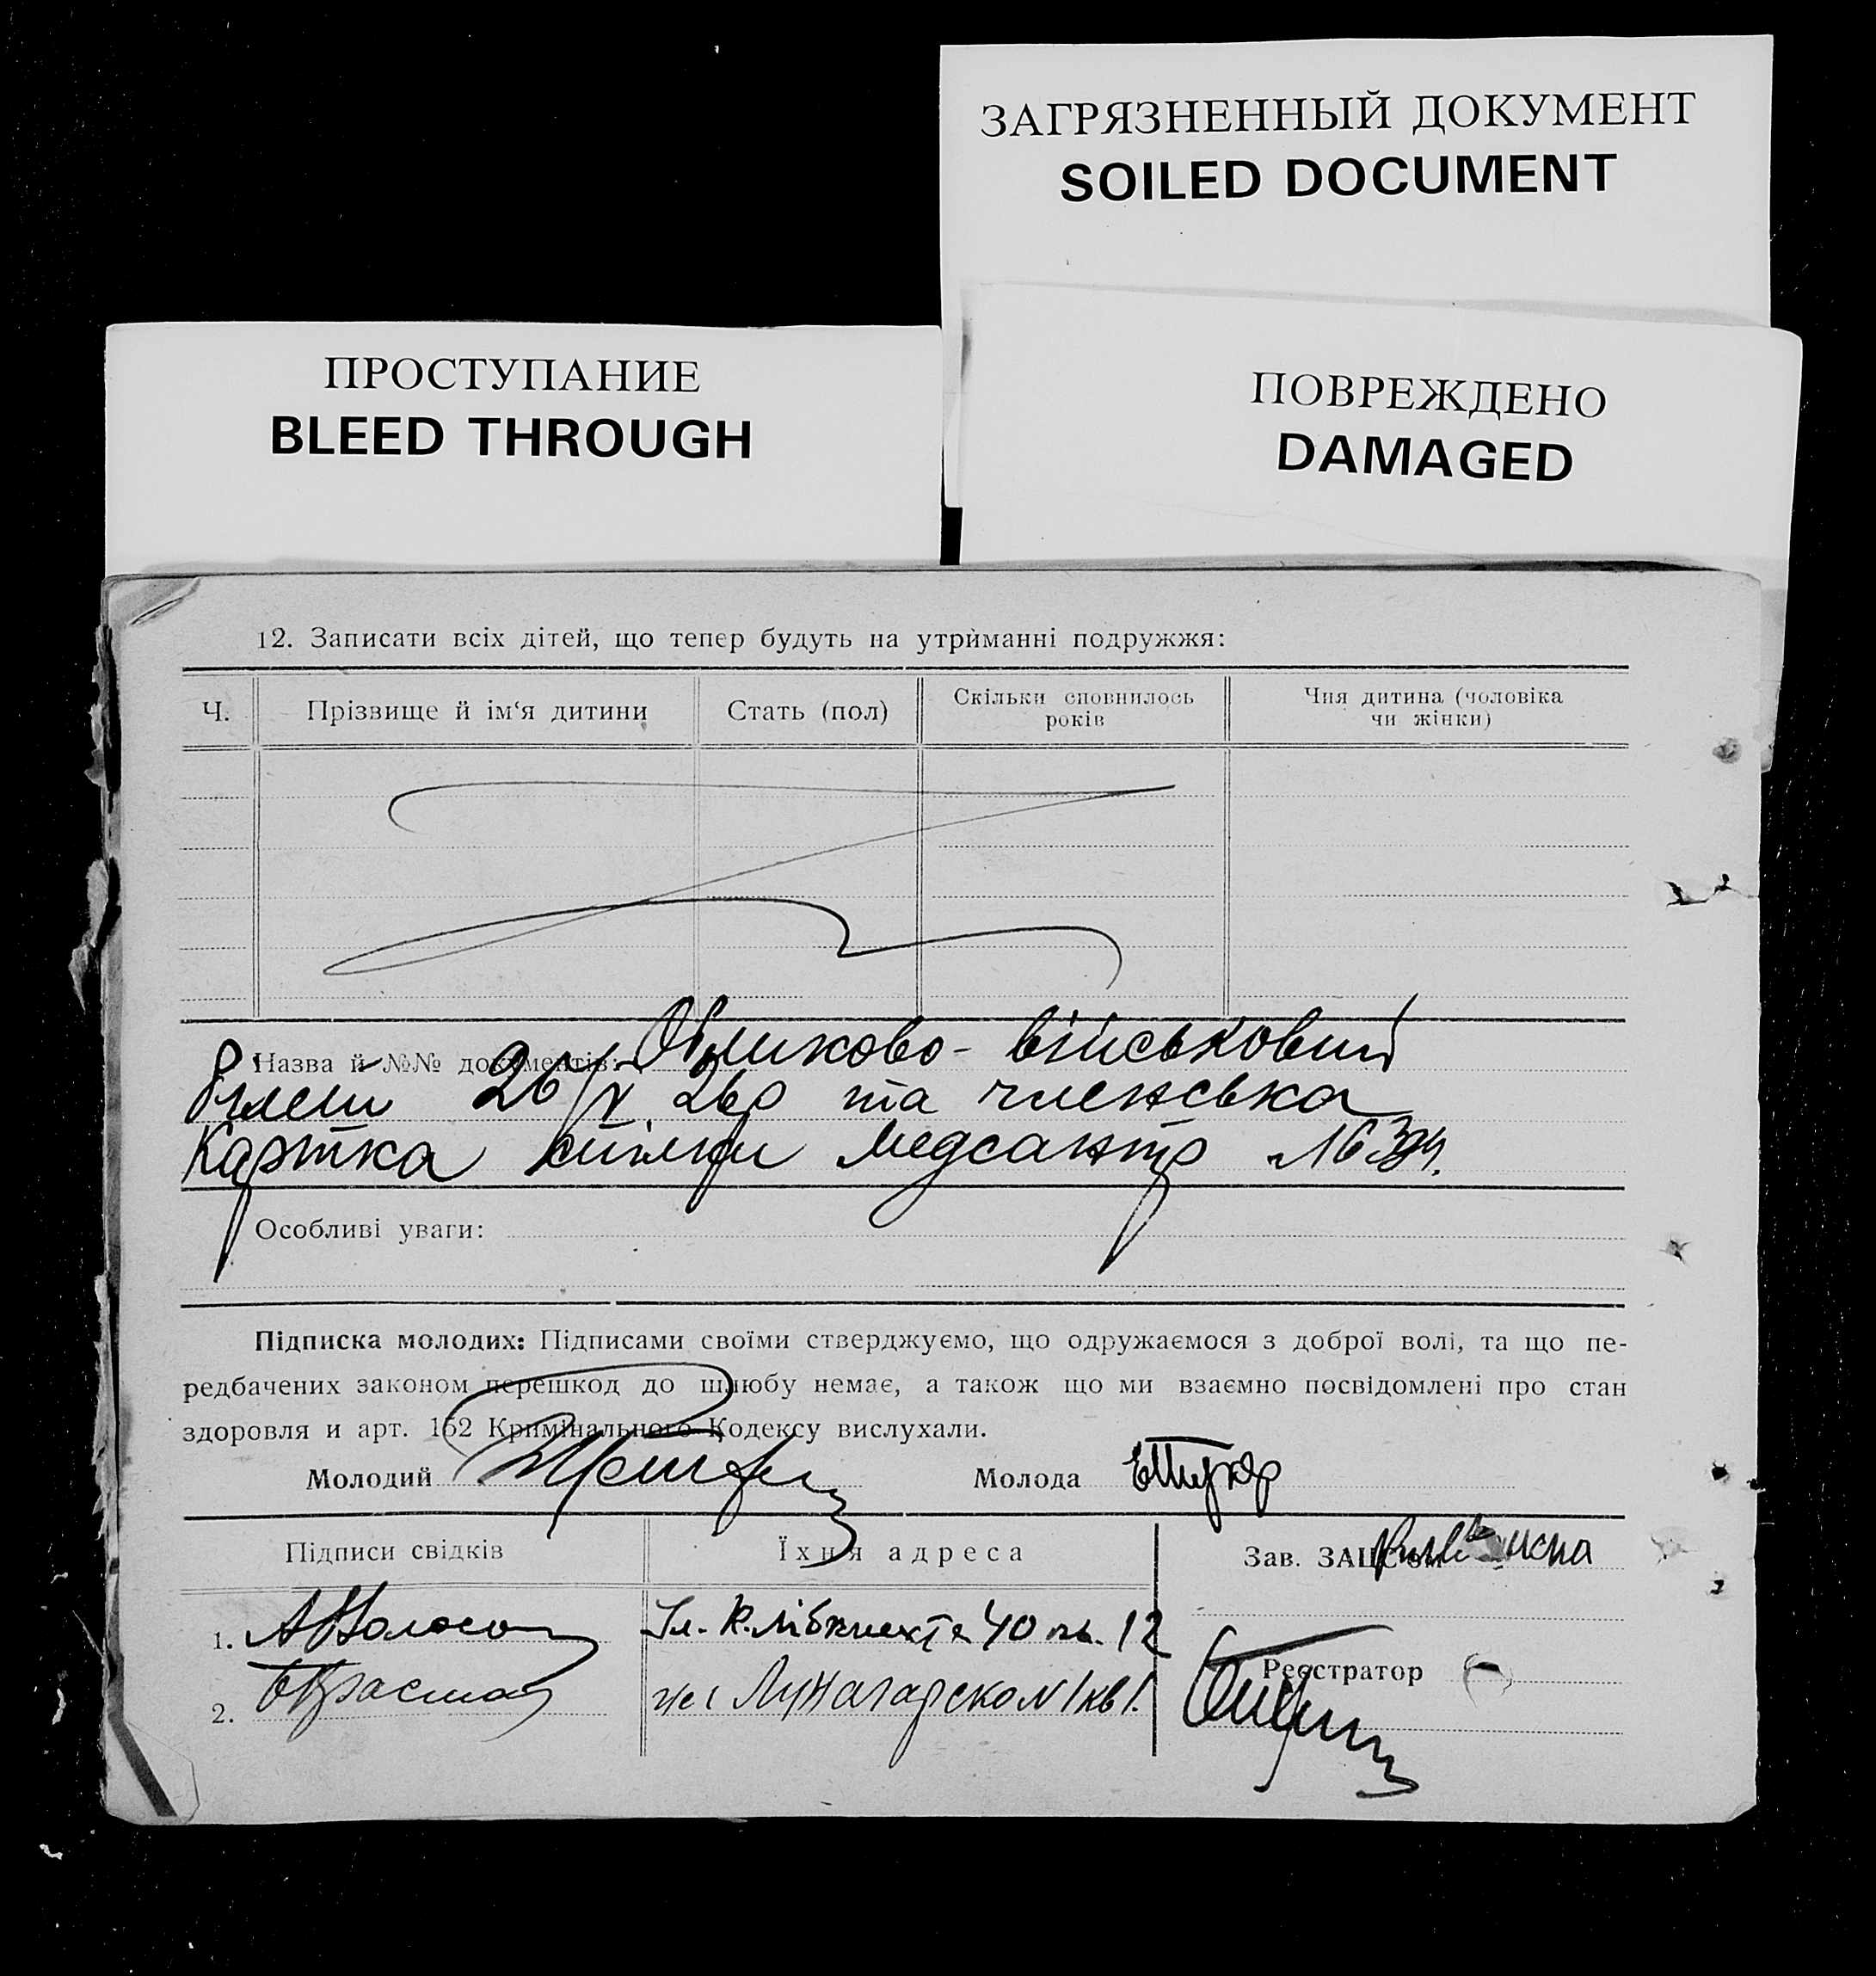 ЗАГРЯЗНЕННЫЙ ДОКУМЕНТ
SOILED DOCUMENT
ПРОСТУПАНИЕ
BLEED THROUGH
ПОВРЕЖДЕНО
DAMAGED
12. Записати всіх дітей, що тепер будуть на утриманні подружжя:
Ч.
Прізвище й ім‘я дитини
Стать (пол)
Скільки сповнилось
років
Чия дитина (чоловіка
чи жінки)
Назва й №№ документів: Обліково-військовий
білет 26/V 26р та членська
картка спілки Медсантр №
Особливі уваги:
Підписка молодих: Підписами своїми стверджуємо, що одружаємося з доброї волі, та що пе-
редбачених законом перешкод до шлюбу немає, а також що ми взаємно посвідомлені про стан
здоровля и арт. 152 Кримінального Кодексу вислухали.
Молодий
Молода
Підписи свідків
Їхня адреса
Зав. ЗАЦСом
1.
Ул. К. Лібкнехта 40 12
2.
Луначарском 1 кв 1.
Реєстратор